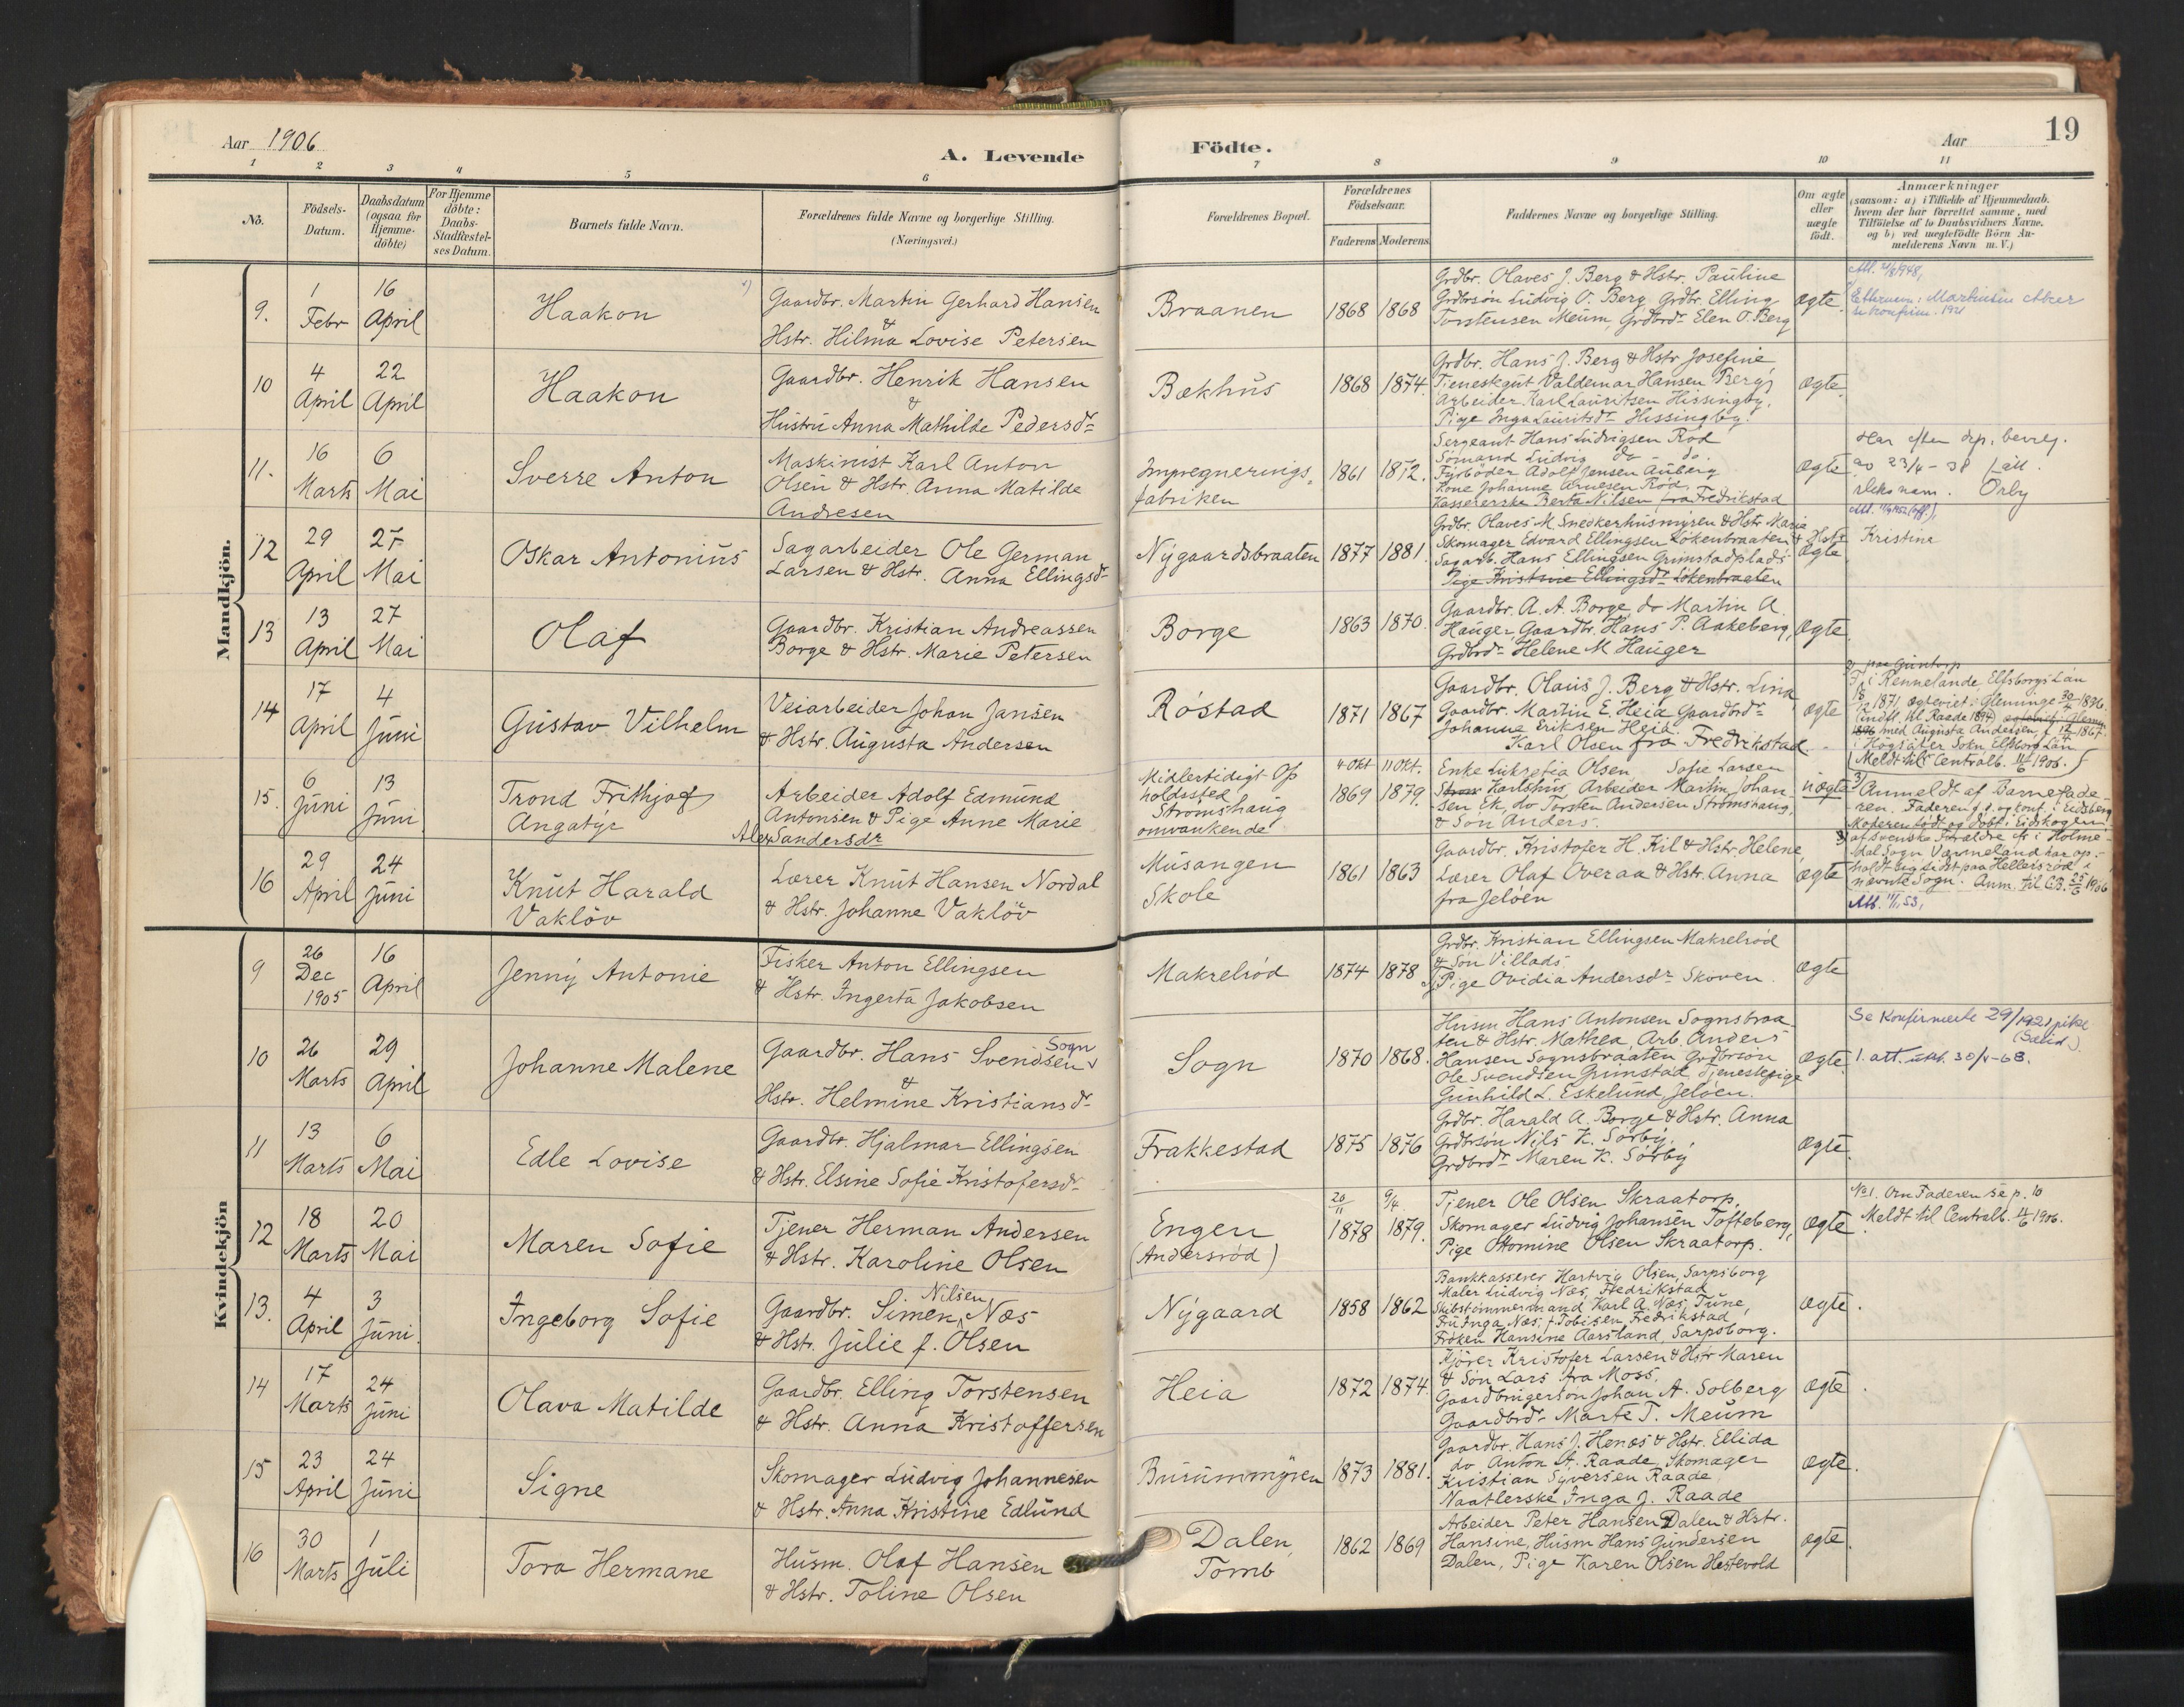 Aar 1906
A. Levende
Födte.
Aar
19
1 2 3 4 5 6 7 8 9 10 11
No.
Födsels-Datum.
Daabsdatum (ogsaa for Hjemme-döbte)
For Hjemme döbte: Daabs-Stadfæstel-ses Datum.
Barnets fulde Navn.
Forældrenes fulde Navne og borgerlige Stilling.
(Næringsvei.)
Forældrenes Bopæl.
Forældrenes Födselsaar.
Faderens Moderens
Faddernes Navne og borgerlige Stilling.
Om ægte eller uægte födt.
Anmærkninger
(saasom: a) i Tilfælde af Hjemmedaab.
hvem der har forrettet samme, med
Tilföielse af to Daabsvidners Navne.
og b) ved uægtefödte Börn An-
melderens Navn m. V.)
Mandkjön.
9.
1 Febr
16 April
Haakon
Gaardbr. Martin Gerhard Hansen
&
Hstr. Hilma Lovise Petersen
Braanen
1868 1868
Grdbr. Olaves J. Berg & Hstr. Pauline
Grdbrsön Ludvig O. Berg Grdbr. Elling
Torstensen Meum, Grdbrdr Elen O. Berg
ægte
10
4 April
22 April
Haakon
Gaardbr. Henrik Hansen
&
Hustru Anna Mathilde Pedersdr
Bækhus
1868 1874.
Grdbr. Hans J. Berg & Hstr Josefine,
Tjenestegut Valdemar Hansen Berg,
Arbeider Karl Lauritsen Hissingby,
Pige Inga Lauritsdr Hissingby.
ægte
11.
16 Marts
6 Mai
Sverre Anton
Maskinist Karl Anton
Olsen & Hstr. Anna Matilde
Andresen
Impregnerings-
fabriken
1861 1872.
Sergeant Hans Ludvigsen Rød
Sømand Ludvig do - do.
Fyrbøder Adolf Jensen Auberg
Kone Johanne Arnesen Rød.
Kassererske Berta Nilsen fra Fredrikstad
ægte
Har efter dep. bevilg.
av 23/4 - 38 fått
slektsnam. Örby
12
29 April
27 Mai
Oskar Antonius
Sagarbeider Ole German
Larsen & Hstr. Anna Ellingsdr
Nygaardsbraaten
1877 1881
Grdbr. Olaves M. Snedkerhusmyren & Hstr Marie
Skomager Edvard Ellingsen Løkenbraaten & Hstr
Sagarb. Hans Ellingsen Grimstadplads
Pige Kristine Ellingsdr Løkenbraaten
ægte
Kristine
13
13 April
27 Mai
Olaf
Gaardbr. Kristian Andreassen
Borge & Hstr. Marie Petersen
Borge
1863 1870.
Gaardbr. A. A. Borge do Martin A.
Hauger, Gaardbr. Hans P. Aakeberg,
Grdbrdr Helene M Hauger
ægte
14
17 April
4 Juni
Gustav Vilhelm
Veiarbeider Johan Jansen
& Hstr. Augusta Andersen
Róstad
1871 1867
Gaardbr. Olaus J. Berg & Hstr. Lina
Gaardbr. Martin E. Heia Gaardbrdr
Johanne Eriksen Heia.
Karl Olsen fra Fredrikstad.
ægte
F. i Rennelanda Elfsborgs Län
1871 ægteviet i Glemminge 30/4 1896.
Indfl. til Raade 1894
1896 med Augusta Andersen f. 1867
i Högsäter Sokn, Elfsborg Län
Meldt til Centralb. 11/6 1906.
15.
6 Juni
13 Juni
Trond Frithjof
Angatyr
Arbeider Adolf Edmund
Antonsen & Pige Anne Marie
Alexsandersdr
Midlertidigt Op
holdssted
Strømshaug
omvankende
4 Okt 11 Okt.
1869 1879.
Enke Lukretia Olsen, Sofie Larsen
Karlshus, Arbeider Martin Johan-
sen Ek, do Torsten Andersen Strømshaug,
& Søn Anders.
uægte
3) Anmeldt af Barnefade-
ren. Faderen f. og konf. i Eidsberg
Moderen født og døbt i Eidskogen
af svenske Forældre fr i Holme-
dal Sogn Värmeland har op-
holdt sig sidst paa Hellesrød i
nævnte Sogn. Anm. til C.B. 25/6 1906
16
29 April
24 Juni
Knut Harald
Vakløv
Lærer Knut Hansen Nordal
& Hstr. Johanne Vakløv
Musangen
Skole
1861 1863
Gaardbr. Kristofer H. Kil & Hstr. Helene,
Lærer Olaf Overaa & Hstr. Anna
fra Jeløen
ægte
Kvindekjön
9
26 Dec 1905
16 April
Jenny Antonie
Fisker Anton Ellingsen
& Hstr. Ingerta Jakobsen
Makrelrød
1874 1878
Grdbr. Kristian Ellingsen Makrelrød
& Søn Villads
Pige Ovidia Andersdr Skoven.
ægte
10
26 Marts
29 April
Johanne Malene
Sogn
Gaardbr. Hans Svendsen
&
Hstr. Helmine Kristiansdr
Sogn
1870 1868.
Husm Hans Antonsen Sognsbraa-
ten & Hstr. Mathea, Arb. Anders
Hansen Sognsbraaten Grdbrsön
Ole Svendsen Grimstad, Tjenestepige
Gunhild L. Eskelund, Jeløen.
ægte
Se Konfirmerte 29/1921 pike
1. att. utst. 30/4-68.
11
13 Marts
6 Mai
Edle Lovise
Gaardbr. Hjalmar Ellingsen
& Hstr. Elsine Sofie Kristofersdr
Frakkestad
1875 1876
Grdbr. Harald A. Borge & Hstr. Anna
Grdbrsøn Nils K. Sørby.
Grdbrdr Maren K. Sørby
ægte
12
18 Marts
20 Mai
Maren Sofie
Tjener Herman Andersen
& Hstr. Karoline Olsen
Engen
(Andersrød)
20/11 9/4
1878 1879.
Tjener Ole Olsen Skraatorp.
Skomager Ludvig Johansen Tofteberg,
Pige Ottomine Olsen Skraatorp.
ægte
No 1. Om Faderen se p. 10
Meldt til Centralb. 11/6 1906.
13.
4 April
3 Juni.
Ingeborg Sofie
Nilsen
Gaardbr. Simen Næs
& Hstr. Julie f. Olsen
Nygaard
1858 1862
Bankkasserer Hartvig Olsen, Sarpsborg
Maler Ludvig Næs, Fredrikstad
Skibstømmermand Karl A. Næs, Tune,
Fru Inga Næs, f. Tobisen Fredrikstad
Frøken Hansine Aarsland, Sarpsborg.
ægte
14
17 Marts
24 Juni
Olava Matilde
Gaardbr. Elling Torstensen
& Hstr. Anna Kristoffersen
Heia
1872 1874.
Kjører Kristofer Larsen & Hstr Maren
& Søn Lars fra Moss.
Gaardbrugersøn Johan A. Solberg
Gaardbrdr Marte T. Meum
ægte
15
23 April
24 Juni
Signe
Skomager Ludvig Johannesen
& Hstr. Anna Kristine Edlund
Burummyren
1873 1881.
Gaardbr. Hans J. Henæs & Hstr. Ellida
do Anton St. Raade, Skomager
Kristian Syversen Raade,
Naatlerske Inga J. Raade
ægte
16
30 Marts
1 Juli
Tora Hermane
Husm. Olaf Hansen
& Hstr. Toline Olsen
Dalen,
Tomb
1862 1869
Arbeider Peter Hansen Dalen & Hstr.
Hansine, Husm Hans Gundersen
Dalen, Pige Karen Olsen Hestevold
ægte